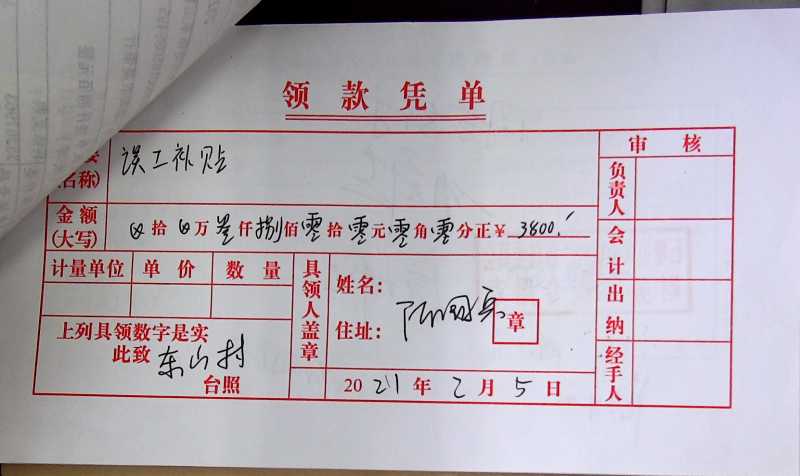 领款凭单
审核
名称) 误工补贴
负责人
金额(大写) ⊗拾⊗万叁仟捌佰零拾零元零角零分正¥ 3800.
会计
计量单位 单价 数量
具领人盖章
姓名:
住址: 章
出纳
上列具领数字是实
此致 东山村
台照
2021年2月5日
经手人